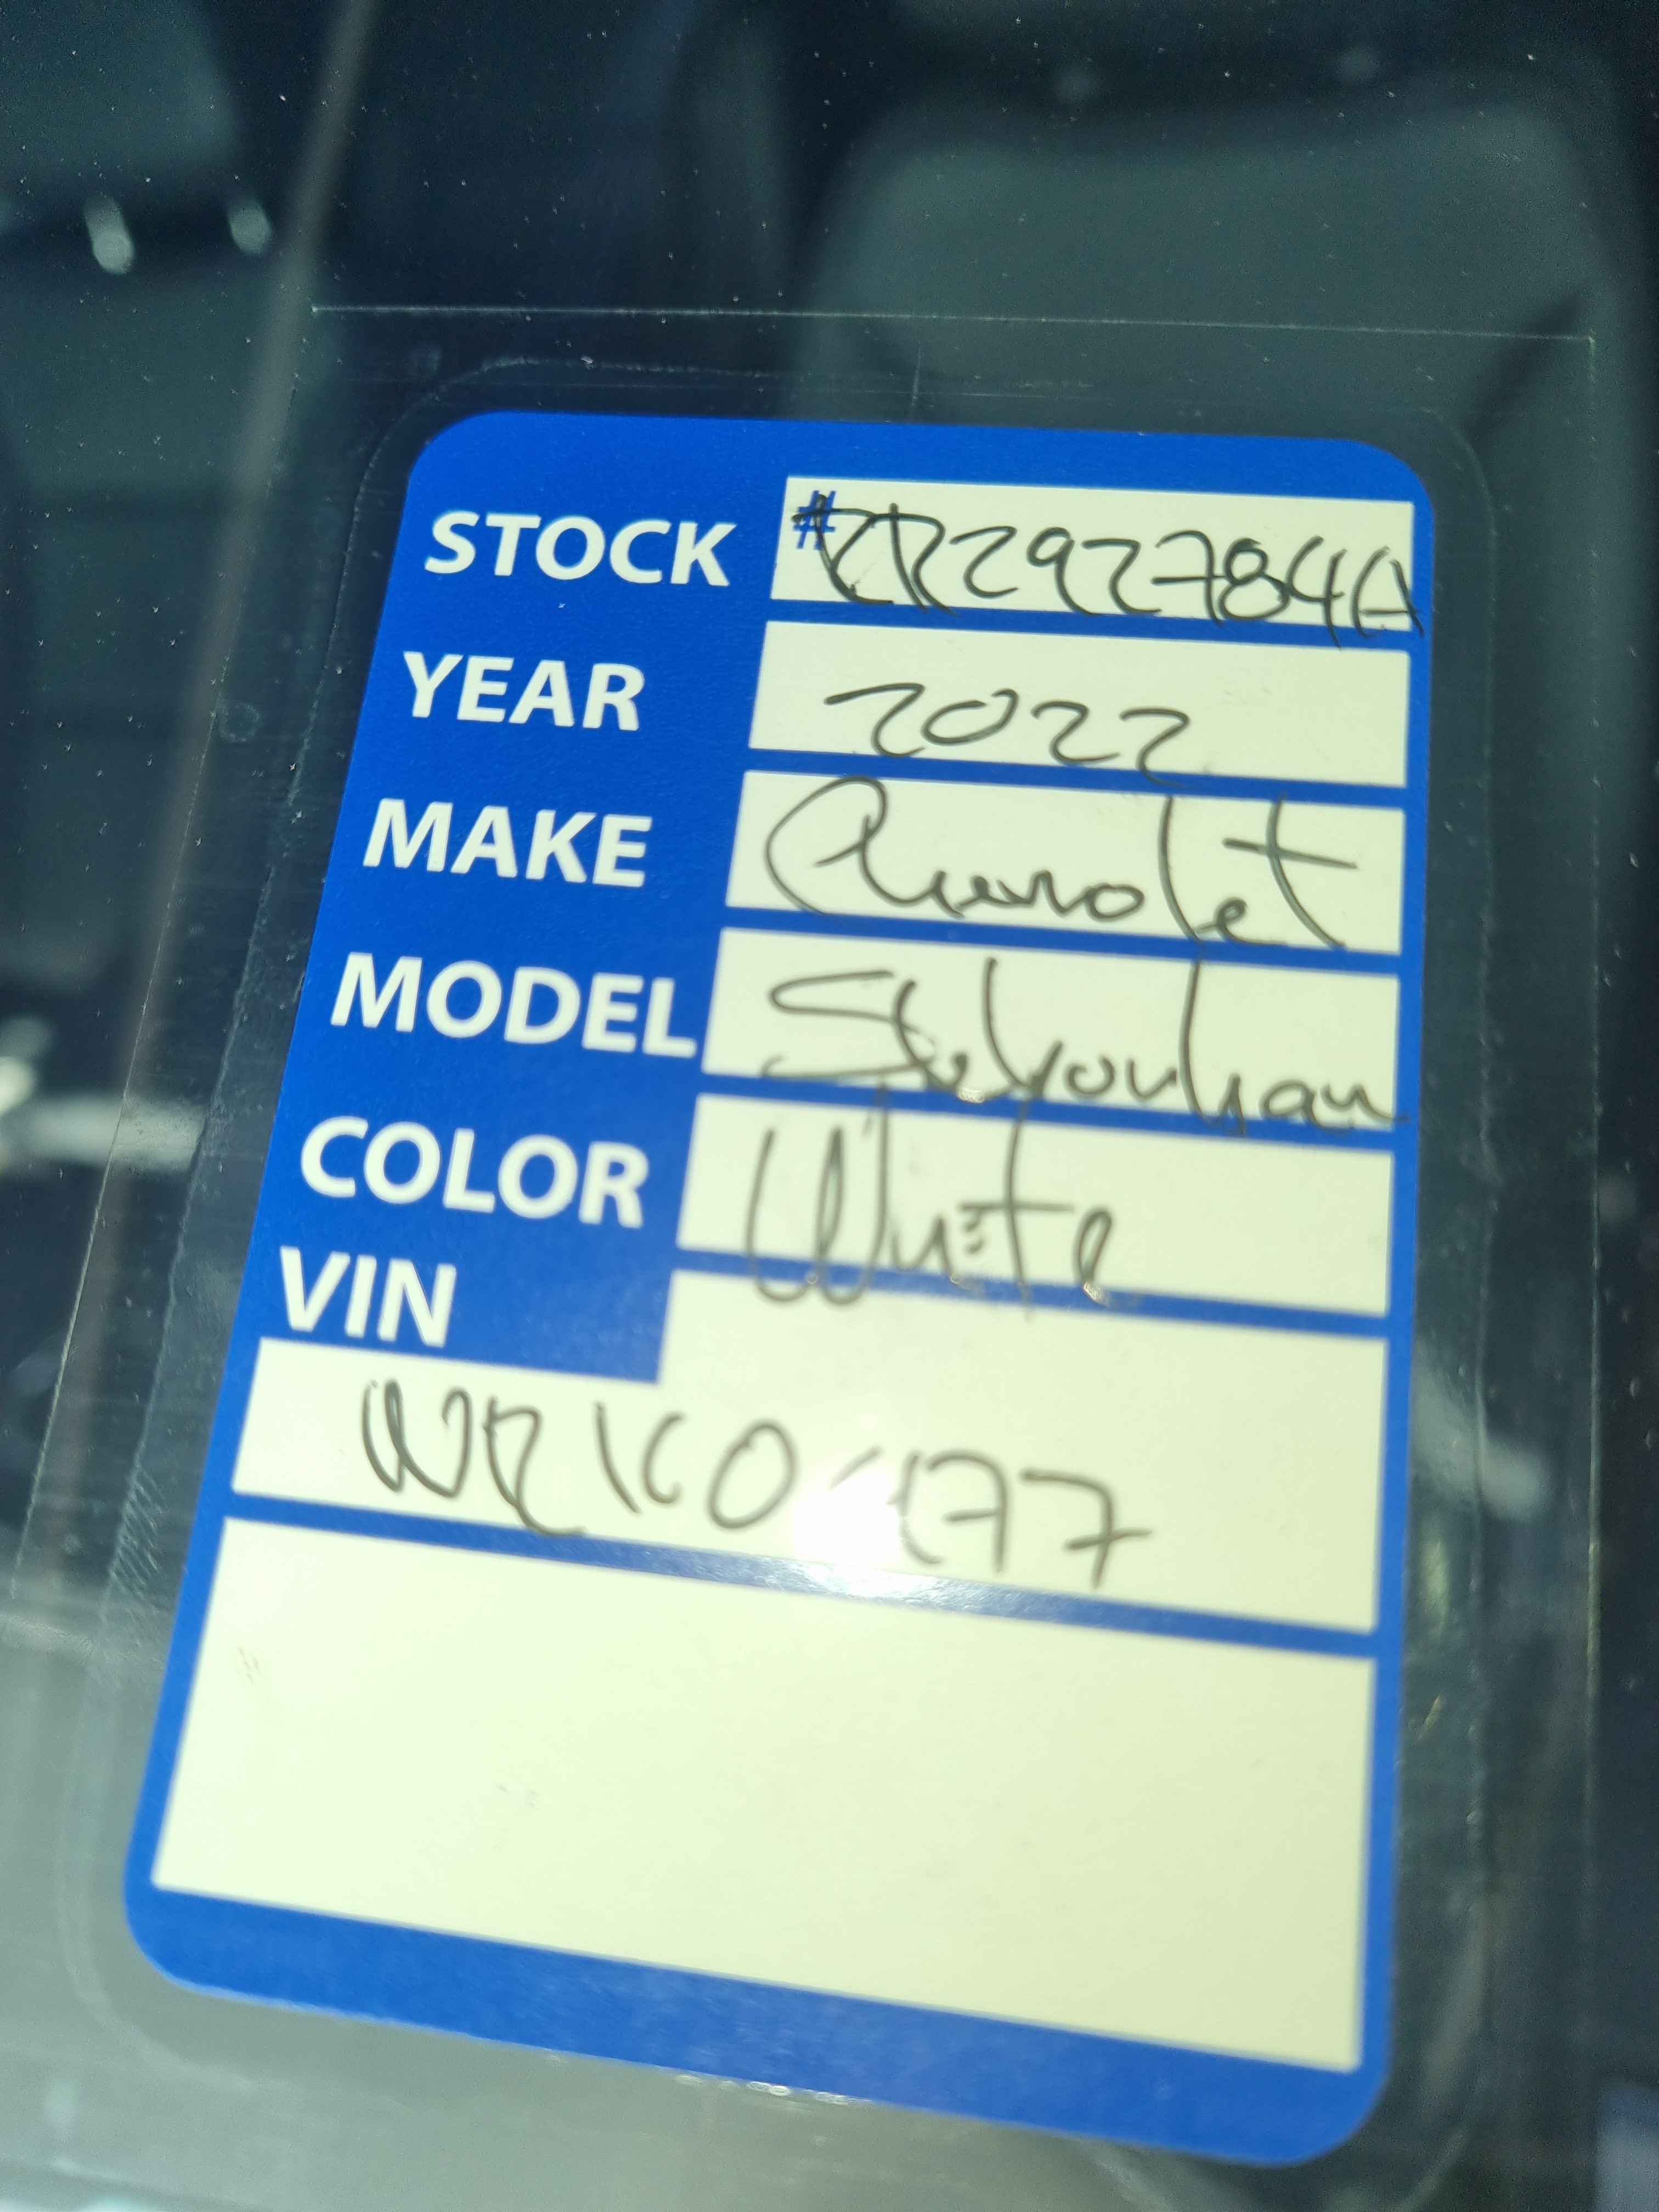 STOCK #RR292784A
YEAR 2022
MAKE Chevrolet
MODEL Suburban
COLOR White
VIN